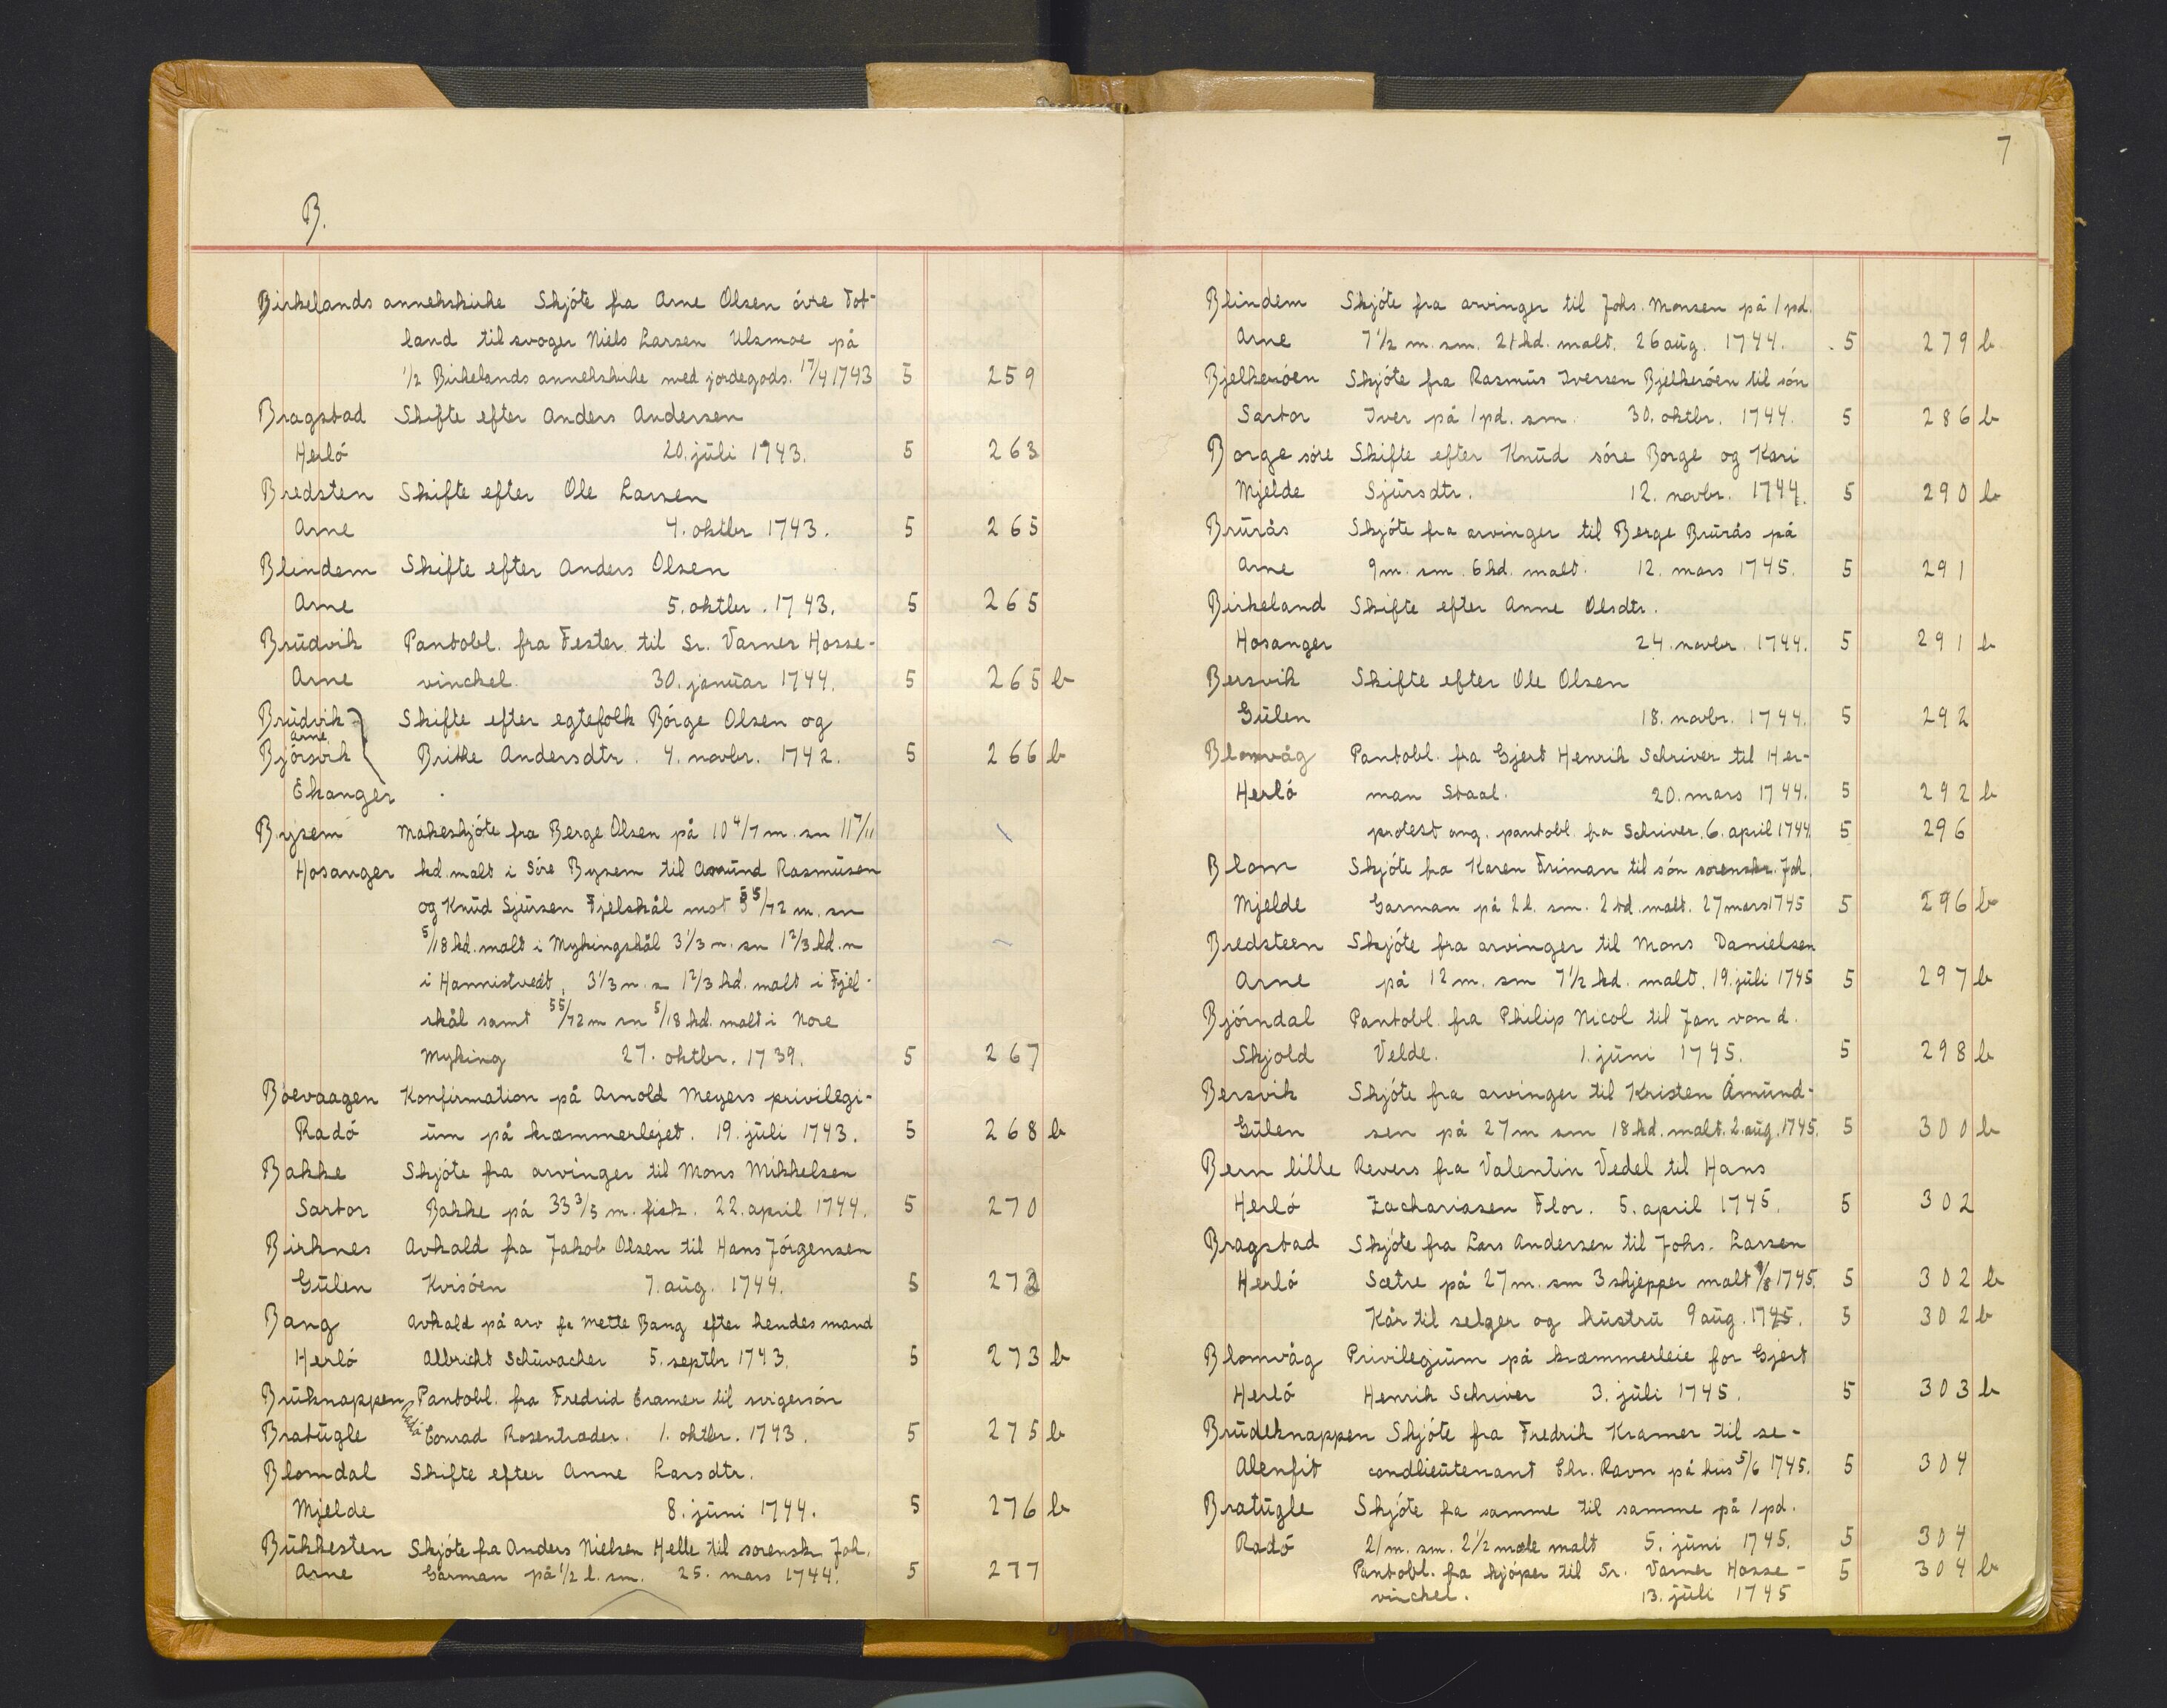 B.
Birkelands annekskirke Skjóte fra Arne Olsen óvre Tot-
land til svoger Niels Larsen Ulsmoe på
1/2 Birkelands annekskirke med jordegods. 17/4 1743 5 259
Bragstad Skifte efter Anders Andersen
Herló 20. júli 1743. 5 263
Bredsten Skifte efter Ole Larsen
Arne 4. oktbr 1743. 5 265
Blindem Skifte efter Anders Olsen
Arne 5. oktbr. 1743. 5 265
Brúdvik Pantobl. fra Fester til Sr. Varner Hosse-
Arne vinckel. 30. janúar 1744. 5 265 b
Brúdvik Skifte efter egtefolk Bórge Olsen og
Arne
Bjórsvik Britke Andersdtr. 4. novbr. 1742. 5 266 b
Ekanger
Bysem Makeskjóte fra Berge Olsen på 10 4/7 m. sm 11 7/11
Hosanger hd. malt i Sóre Bysem til Amúnd Rasmúsen
og Knúd Sjúrsen Fjelskål mot 55/72 m. sm
5/18 hd. malt i Mykingskål 3 1/3 m. sm 1 2/3 hd. m
i Hannistvedt, 3 1/3 m. s 1 2/3 hd. malt i Fjel-
skål samt 55/72 m sm 5/18 hd. malt i Nore
Myking 27. oktbr. 1739. 5 267
Boevaagen Konfirmation på Arnold Meyers privilegi-
Radó úm på kræmmerlejet. 19. júli 1743. 5 268 b
Bakke Skjóte fra arvinger til Mons Mikkelsen
Sartor Bakke på 33 3/5 m. fisk. 22. april 1744. 5 270
Birknes Avkald fra Jakob Olsen til Hans Jórgensen
Gúlen Kvisóen 7. aúg. 1744. 5 272
Bang Avkald på arv fr Mette Bang efter hendes mand
Herló Albricht Schúvacher 5. septbr 1743. 5 273 b
Brúknappen Pantobl. fra Fredrid Cramer til svigersón
Radó
Bratúgle Conrad Rosentræder. 1. oktbr. 1743. 5 275 b
Blomdal Skifte efter Anne Larsdtr.
Mjelde 8. júni 1744. 5 276 b
Búkkesten Skjóte fra Anders Nielsen Helle til sorenskr. Joh.
Arne Garman på 1/2 l. sm. 25. mars 1744. 5 277
7
Blindem Skjóte fra arvinger til Johs. Monsen på 1 pd.
Arne 7 1/2 m. sm. 21 hd. malt. 26 aúg. 1744. 5 279 b
Bjelkeróen Skjóte fra Rasmús Iversen Bjelkeróen til són
Sartor Iver på 1 pd. sm. 30. oktbr. 1744. 5 286 b
Borge sóre Skifte efter Knúd sóre Borge og Kari
Mjelde Sjúrsdtr. 12. novbr. 1744. 5 290 b
Brúrås Skjóte fra arvinger til Berge Brúrås på
Arne 9 m. sm. 6 hd. malt. 12. mars 1745. 5 291
Birkeland Skifte efter Anne Olsdtr.
Hosanger 24. novbr. 1744. 5 291 b
Bersvik Skifte efter Ole Olsen
Gúlen 18. novbr. 1744. 5 292
Blomvåg Pantobl. fra Gjert Henrik Schriver til Her-
Herló man Staal. 20. mars 1744. 5 292 b
protest ang. pantobl. fra Schriver. 6. april 1744. 5 296
Blom Skjóte fra Karen Friman til són sorenskr. Joh.
Mjelde Garman på 2 l. sm. 2 td. malt. 27 mars 1745 5 296 b
Bredsteen Skjóte fra arvinger til Mons Danielsen
Arne på 12 m. sm 7 1/2 hd. malt. 19. júli 1745 5 297 b
Bjórndal Pantobl. fra Philip Nicol til Jan von d.
Skjold Velde. 1. júni 1745. 5 298 b
Bersvik Skjóte fra arvinger til Kristen Åmúnd-
Gúlen sen på 27 m sm 18 hd. malt. 2. aúg. 1745. 5 300 b
Bern lille Revers fra Valentin Vedel til Hans
Herló Zachariasen Flor. 5. april 1745. 5 302
Bragstad Skjóte fra Lars Andersen til Johs. Larsen
Herló Sætre på 27 m. sm 3 skjepper malt 9/8 1745. 5 302 b
Kår til selger og hústrú 9 aúg. 1745. 5 302 b
Blomvåg Privilegiúm på kræmmerleie for Gjert
Herló Henrik Schriver 3. júli 1745. 5 303 b
Brúdeknappen Skjóte fra Fredrik Kramer til se-
Alenfit condlieútenant Chr. Ravn på hús 5/6 1745. 5 304
Bratúgle Skjóte fra samme til samme på 1 pd.
Radó 21 m. sm. 2 1/2 mæle malt 5. júni 1745. 5 304
Pantobl. fra kjóper til Sr. Varner Hosse- 5 304 b
vinckel. 13. júli 1745